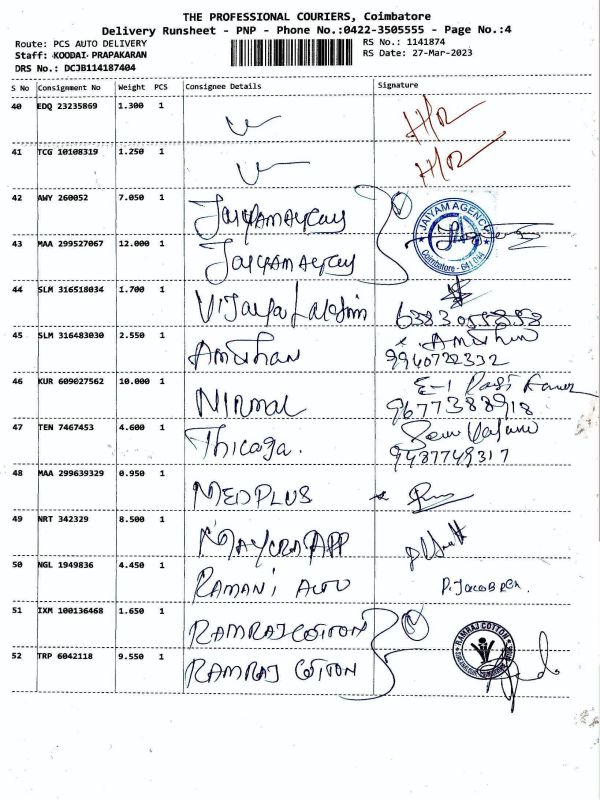 THE PROFESSIONAL COURIERS, Coimbatore
Delivery Runsheet - PNP - Phone No.:0422-3505555 - Page No.:4
Route: PCS AUTO DELIVERY RS No.: 1141874
Staff: KOODAI PRAPAKARAN RS Date: 27-Mar-2023
DRS No.: DCJB114187404
S No Consignment No Weight PCS Consignee Details Signature
40 EDQ 23235869 1.300 1
41 TCG 10108319 1.250 1
42 AWY 260052 7.050 1
JAIYAM AGENCY
Coimbatore - 641 044
43 MAA 299527067 12.000 1
44 SLM 316518034 1.700 1
45 SLM 316483030 2.550 1 9940732332
46 KUR 609027562 10.000 1 NIRMAL 9677388918
47 TEN 7467453 4.600 1 Thicaga. 9487749317
48 MAA 299639329 0.950 1 MEDPLUS
49 NRT 342329 8.500 1
50 NGL 1949836 4.450 1 RAMANI AUTO
51 IXM 100136468 1.650 1 RAMRAJ COTTON
RAMRAJ COTTON
52 TRP 6042118 9.550 1 RAMRAJ COTTON